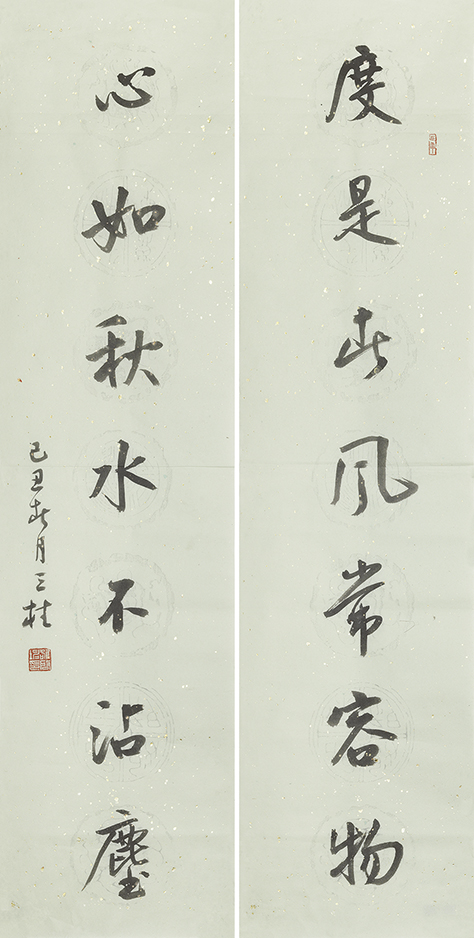 度是春风常容物
心如秋水不沾塵
己丑春月三桂